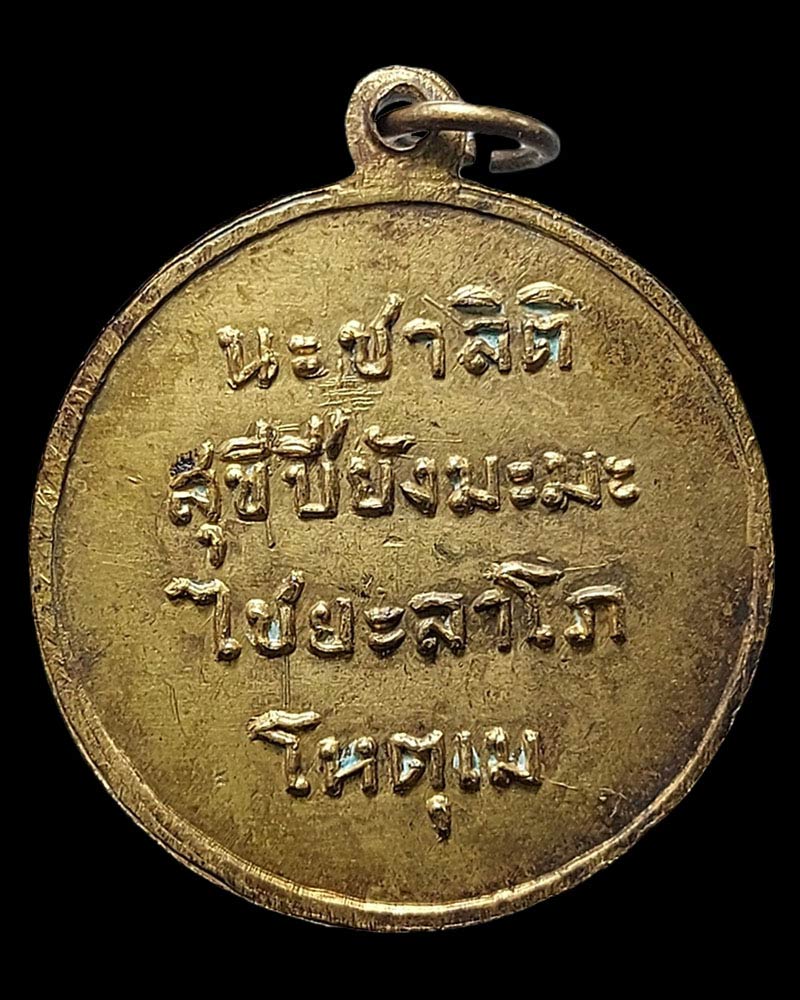 นะชาลิติ
สุขีปียังมะมะ
ไชยะลาโภ
โหตุเม